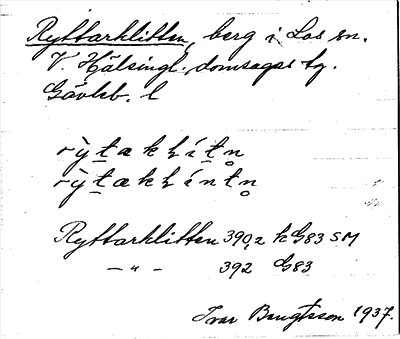 Ryttarklitten, berg i Los sn.
V. Hälsingl. domsagas tg.
Gävleb. l
rỳt̲akḷít̲n̥
rỳt̲akḷínt̲n̥
Ryttarklitten 390,2 k G83 SM
— " — 392 G83
Ivar Bengtsson 1937.